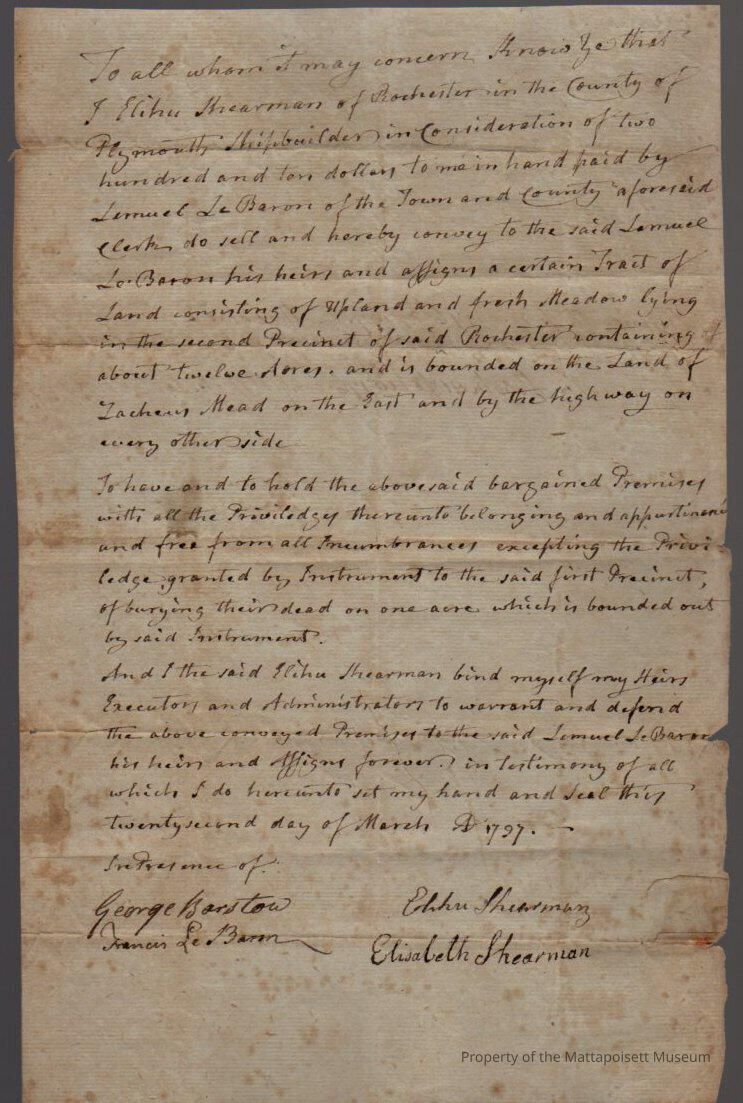 To all whom it may concern Know Ye that
I Elihu Shearman of Rochester in the County of
Plymouth Shipbuilder in Consideration of two
hundred and ten dollars to me in hand paid by
Lemuel Le Baron of the Town and County aforesaid
Clerk do sell and hereby convey to the said Lemuel
Le Baron his heirs and assigns a certain Tract of
Land consisting of Upland and fresh Meadow lying
in the second Precinct of said Rochester containing
about twelve Acres. and is bounded on the Land of
Zacheus Mead on the East and by the highway on
every other side
To have and to hold the abovesaid bargained Premises
with all the Priviledges thereunto belonging and
and free from all Incumbrances excepting the Privi-
ledge granted by Instrument to the said first Precinct,
of burying their dead on one acre which is bounded out
by said Instrument.
And I the said Elihu Shearman bind myself my Heirs
Executors and Administrators to warrant and defend
the above conveyed Premises to the said Lemuel Le Baron
his heirs and Assigns forever. in testimony of all
which I do hereunto set my hand and Seal this
twentysecond day of March AD 1797.
In Presence of
George Barstow Elihu Shearman
Francis Le Baron Elisabeth Shearman
Property of the Mattapoisett Museum